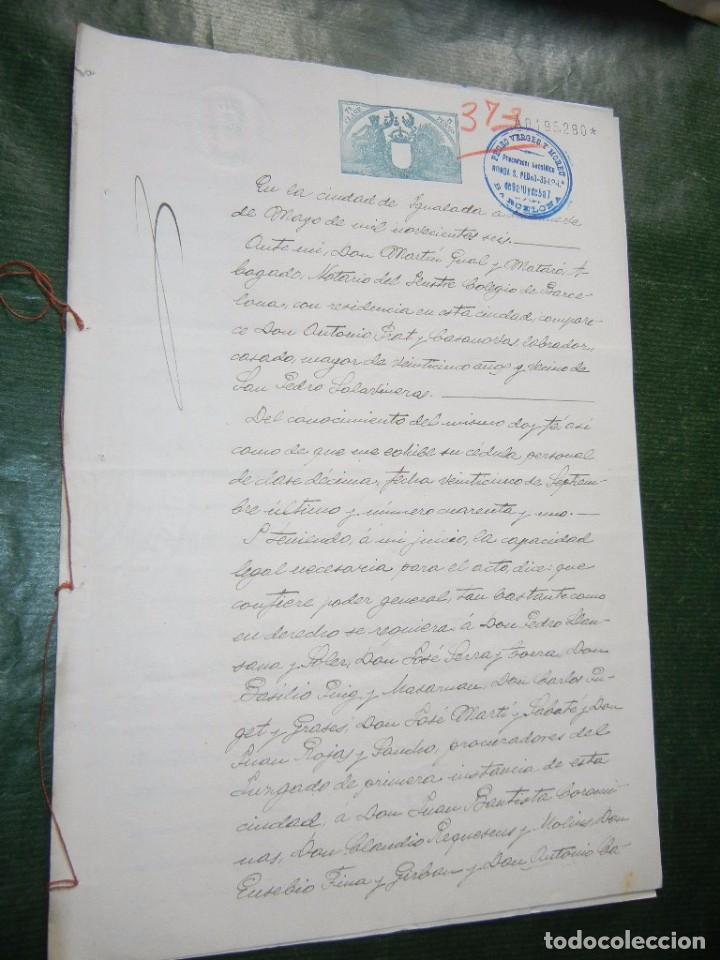 37-3
A0195,280*
PEDRO VERGES Y MOREU
Procurador
RONDA S. PEDRO
BARCELONA
En la ciudad de Igualada a nueve
de Mayo de mil novecientos seis.
Ante mi, Don Martín Gual y Mataró, A-
bogado, Notario del Ilustre Colegio de Barce-
lona, con residencia en esta ciudad, compare-
ce Don Antonio Prat y Casanovas labrador,
casado, mayor de veinticinco años y vecino de
San Pedro Salavineras.
Del conocimiento del mismo doy fé así
como de que me exhibe su cédula personal
de clase décima, fecha veinticinco de Septiem-
bre último y número cuarenta y uno.
Y teniendo, á mi juicio, la capacidad
legal necesaria para el acto, dice: que
confiere poder general, tan bastante como
en derecho se requiera á Don Pedro Llan-
sana y Soler, Don José Serra y Torra, Don
Basilio Puig y Masarnau, Don Carlos Pu-
get y Grases, Don José Martí y Sabaté y Don
Juan Rojas y Sancho, procuradores del
Juzgado de primera instancia de esta
ciudad, á Don Juan Bautista Coromi-
nas, Don Claudio Requesens y Molins, Don
Eusebio Fina y Girbau y Don Antonio Ca-
todocoleccion